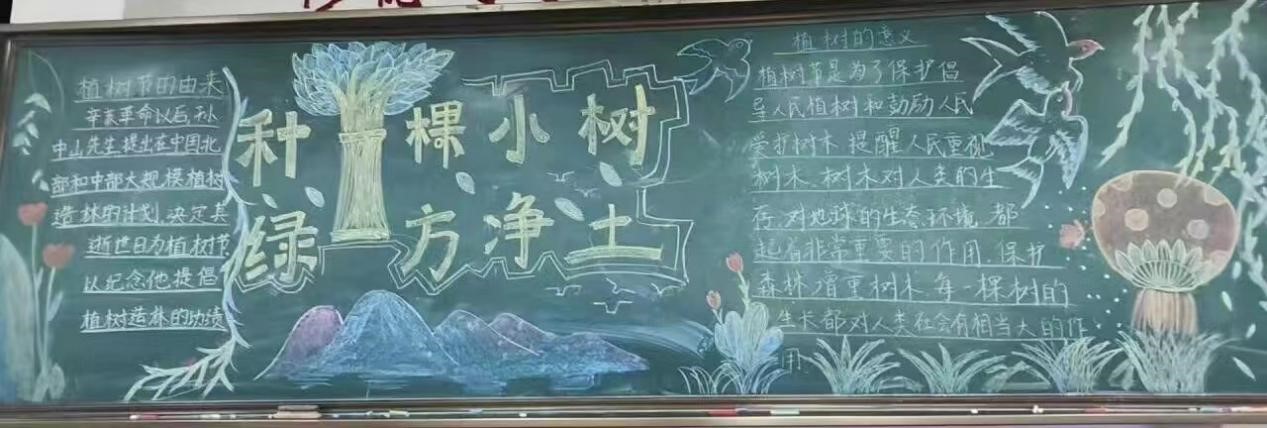 植树节的由来
辛亥革命以后,孙
中山先生提出在中国北
部和中部大规模植树
造林的计划,决定其
逝世日为植树节
以纪念他提倡
植树造林的功绩
种一棵小树
绿一方净土
植树的意义
植树节是为了保护倡
导人民植树和鼓励人民
爱护树木,提醒人民重视
树木.树木对人类的生
存,对地球的生态环境,都
起着非常重要的作用.保护
森林,尊重树木.每一棵树的
生长都对人类社会有相当大的作
用